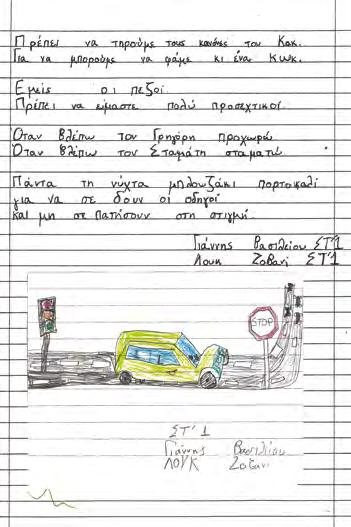 Πρέπει να τηρούμε τους κανόνες του Κοκ.
Για να μπορούμε να φάμε κι ένα κωκ.
Εμείς οι πεζοί.
Πρέπει να είμαστε πολύ προσεχτικοί.
Όταν βλέπω τον Γρηγόρη προχωρώ
Όταν βλέπω τον Σταμάτη σταματώ.
Πάντα τη νύχτα μπλουζάκι πορτοκαλί
για να σε δουν οι οδηγοί
και μη σε πατήσουν στη στιγμή.
Γιάννης Βασιλείου ΣΤ'1
Λουκ Ζοβανί ΣΤ'1
STOP
ΣΤ' 1
Γιάννης Βασιλείου
ΛΟΥΚ Ζοβανι